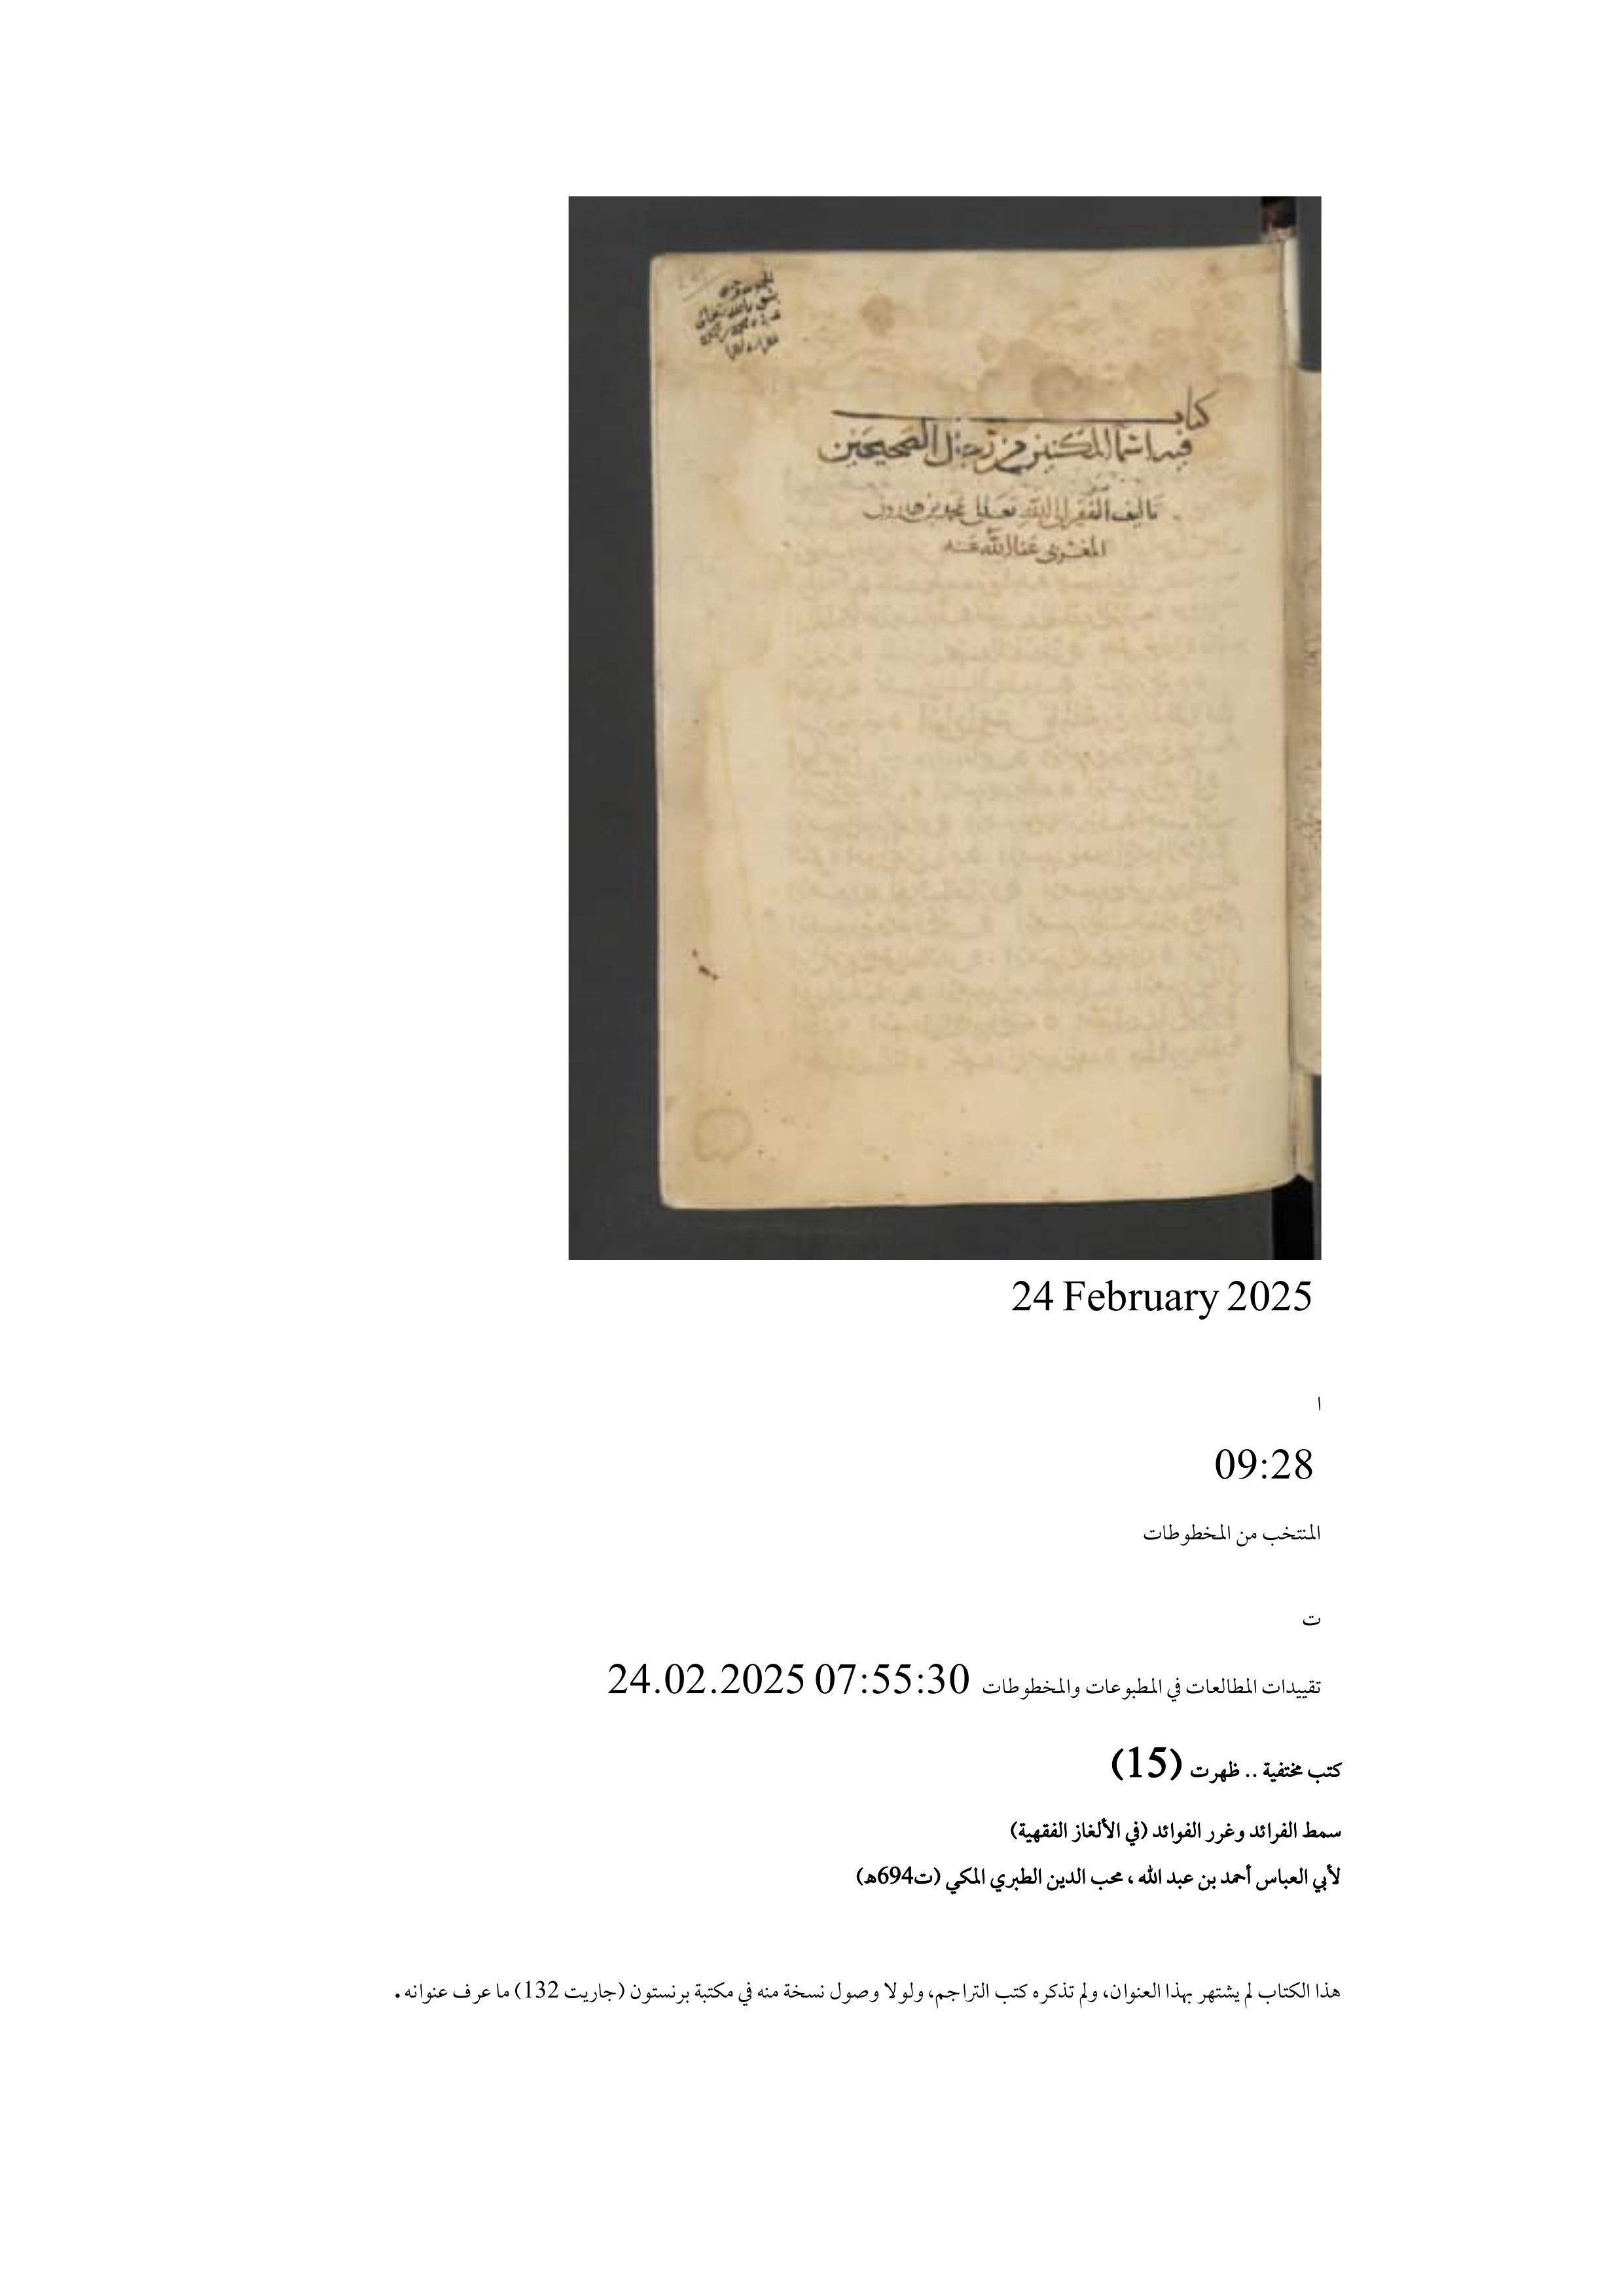 كتاب
فيه اسماء المكنين من رجال الصحيحين
تاليف الفقير الى الله تعالى محمد بن هارون
المغربي عفا الله عنه
24 February 2025
ا
09:28
المنتخب من المخطوطات
ت
تقييدات المطالعات في المطبوعات والمخطوطات 24.02.2025 07:55:30
كتب مختفية .. ظهرت (15)
سمط الفرائد وغرر الفوائد (في الألغاز الفقهية)
لأبي العباس أحمد بن عبد الله ، محب الدين الطبري المكي (ت694هـ)
هذا الكتاب لم يشتهر بهذا العنوان، ولم تذكره كتب التراجم، ولولا وصول نسخة منه في مكتبة برنستون (جاريت 132) ما عرف عنوانه.